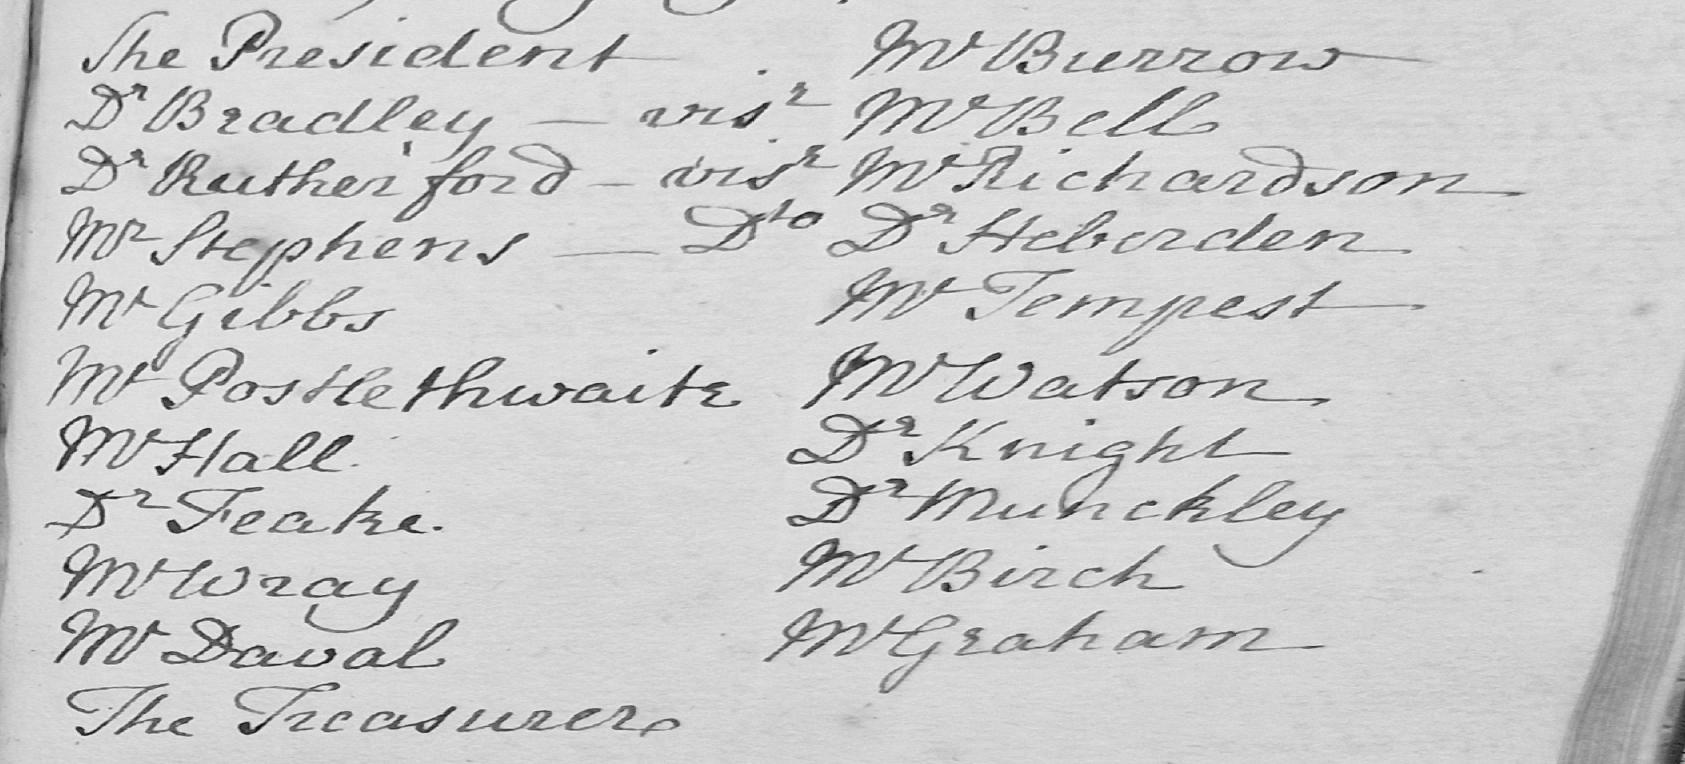 The President Mr Burrow
Dr Bradley — visr Mr Bell
Dr Rutherford – visr Mr Richardson
Mr Stephens — Dto Dr Heberden
Mr Gibbs Mr Tempest
Mr Postlethwaite Mr Watson
Mr Hall. Dr Knight
Dr Feake. Dr Munckley
Mr Wray Mr Birch
Mr Daval Mr Graham
The Treasurer